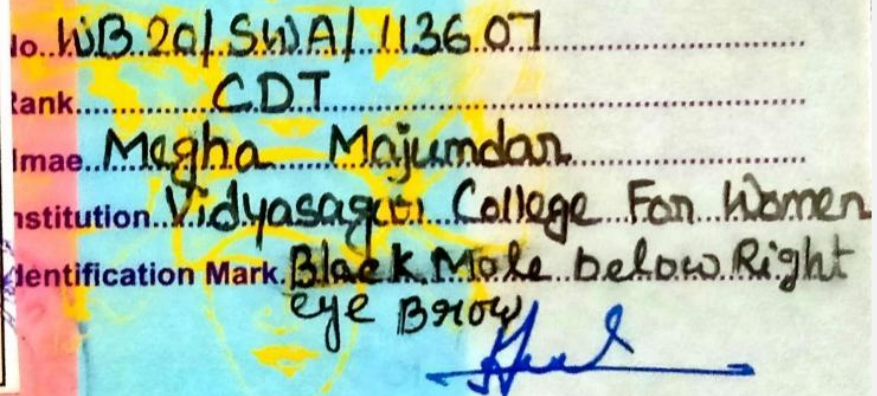 No. WB 20/SWA/113607
Rank CDT
Nmae Megha Majumdar
Institution Vidyasagar College For Women
Identification Mark Black Mole below Right
eye Brow